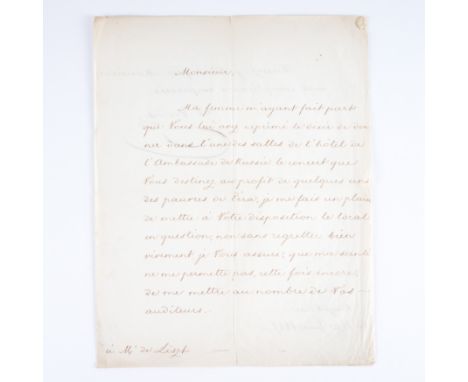 Monsieur,
Ma femme m'ayant fait part
que Vous lui avez exprimé le désir de don-
ner dans l'une des salles de l'hôtel de
l'Ambassade de Russie le concert que
Vous destinez au profit de quelques uns
des pauvres de je me fais un plaisir
de mettre à Votre disposition le local
en question, non sans regretter bien
vivement je Vous assure, que ma santé
ne me permette pas, cette fois encore,
de me mettre au nombre de Vos
auditeurs.
à Mr de Liszt